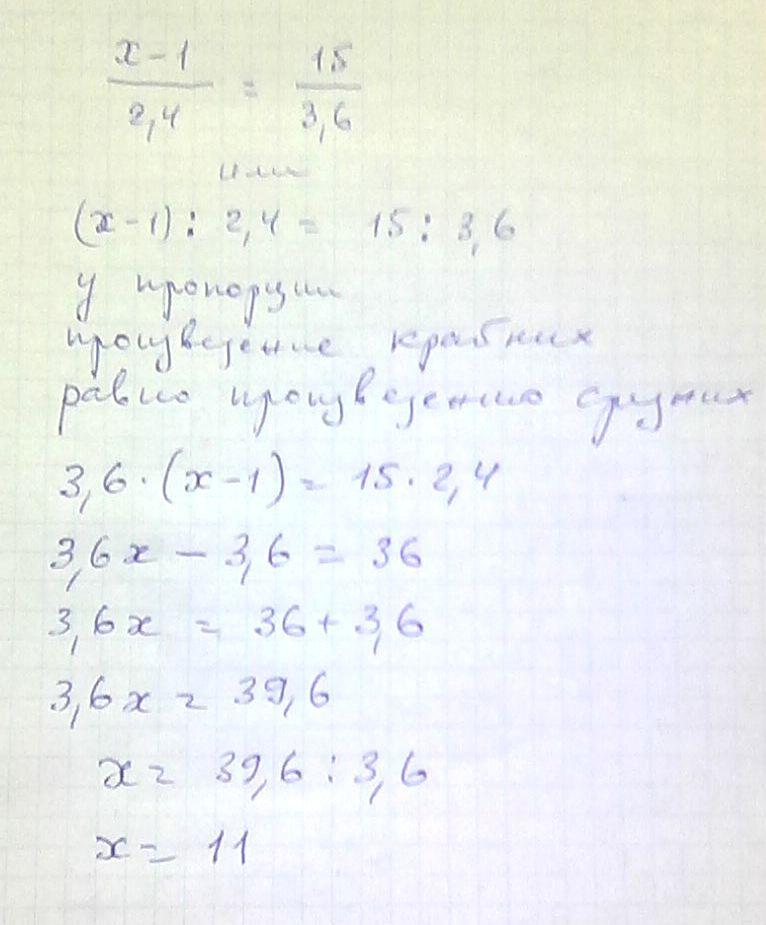 x-1 / 2,4 = 15 / 3,6
или
(x-1) : 2,4 = 15 : 3,6
у пропорции
произведение крайних
равно произведению средних
3,6·(x-1) = 15·2,4
3,6x - 3,6 = 36
3,6x = 36 + 3,6
3,6x = 39,6
x = 39,6 : 3,6
x = 11